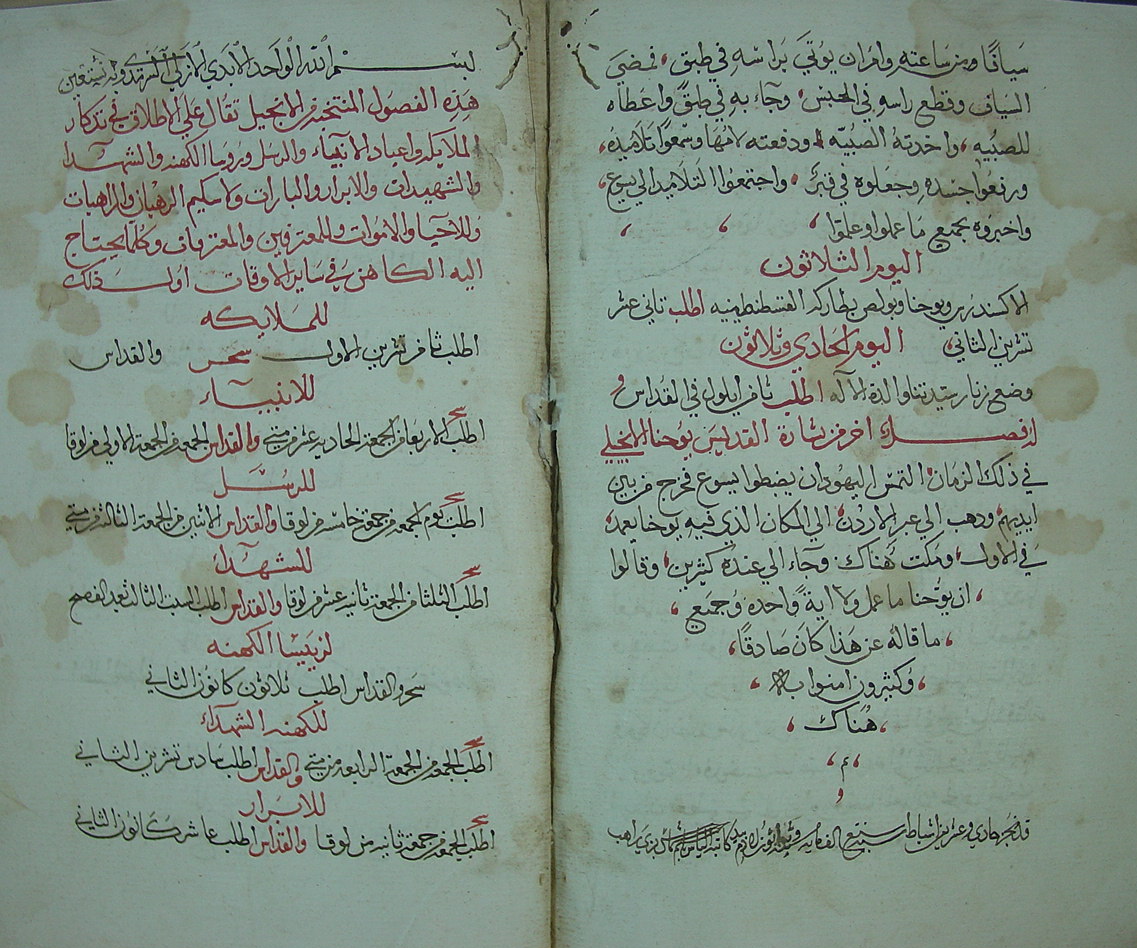 سيافًا من ساعته وامر ان يوتي براسه في طبق، فمضي
السياف وقطع راسه في الحبس، وجاء به في طبق واعطاه
للصبيه، واخدته الصبيه ودفعته لامها وسمعوا تلاميذه،
ورفعوا جسده وجعلوه في قبر، واجتمعوا التلاميد الي يسوع،
واخبروه بجميع ما عملوا وعلموا،
اليوم الثلاثون
الاكسندرس ويوحنا وبولص بطاركه القسطنطينيه اطلب تاني عشر
تشرين الثاني، اليوم الحادي وثلاثون
وضع زنار ستيدتنا والدة الاله اطلب ثامن ايلول في القداس
فصل اخر من بشارة القديس يوحنا الانجيلي
في ذلك الزمان التمس اليهود ان يضبطوا يسوع فخرج من بين
ايديهم، ودهب الي عبر الاردن، الي المكان الذي فيه يوحنا يعمد،
في الاول، ومكت هناك، وجاء الي عنده كثيرين، وقالوا
، ان يوحنا ما عمل ولا اية واحده وجميع ،
، ما قاله عن هذا كان صادقًا،
، وكثيرون امنوا به ،
، هناك ،
، م ،
بسم الله الواحد الابدي الازلي السرمدي وبه نستعين
هذه الفصول المنتخبه من الانجيل تقال علي الاطلاق في تدكار
الملايكه واعياد الانبياء والرسل وروسا الكهنه والشهدا
والشهيدات والابرار والبارات ولاسكيم الرهبان والراهبات
وللاحيا والاموات وللمعترفين والمعترفات وكلما يحتاج
اليه الكاهن في ساير الاوقات اول ذلك
للملايكه
اطلب ثامن تشرين الاول سحر والقداس
للانبياء
سحر
اطلب الاربعا من الجمعه الحاديه عشر من متي والقداس الجمعه من الجمعه الاولي من لوقا
للرسل
سحر
اطلب يوم الجمعه من جمعة خامسه من لوقا والقداس الاثنين من الجمعه الثالثه من متي
للشهدآء
سحر
اطلب الثلثا من الجمعه ثانيه عشر من لوقا والقداس اطلب السبت الثالث بعد الفصح
لرييسا الكهنه
سحر والقداس اطلب ثلاثون كانون الثاني
للكهنه الشهدآء
سحر
اطلب الجمعه من الجمعه الرابعه من متي والقداس اطلب سادس تشرين الثاني
للابرار
سحر
اطلب الجمعه من جمعة ثانيه من لوقا والقداس اطلب عاشر كانون الثاني